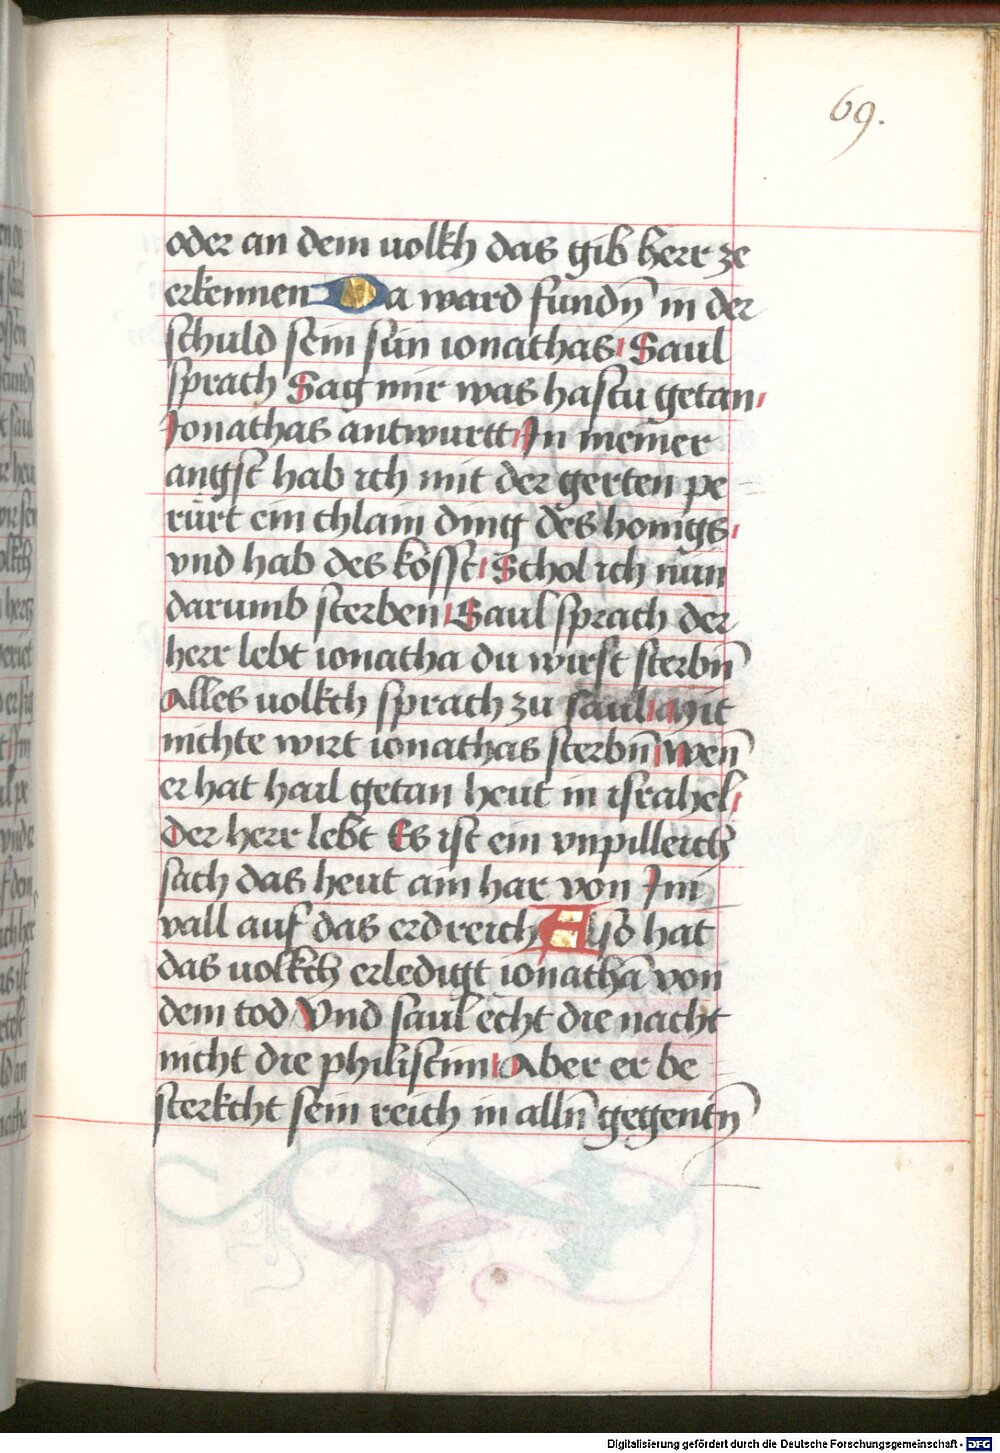 69.
oder an dem uolkh das gib herr ze
erkennen Da ward fundn̄ in der
schuld sein sun ionathas Saul
sprach Sag mir was hastu getan
Jonathas antwurtt In meiner
angst hab ich mit der gerten pe
rürt ein chlain ding des honigs
vnd hab des kosst Schol ich nun
darumb sterben Saul sprach der
herr lebt ionatha du wirst sterbn̄
Alles uolkch sprach zu saul Mit
nichte wirt ionathas sterbn̄ wen̄
er hat hail getan heut in israhel
Der herr lebt Es ist ein vnpilleich
sach das heut ain har von Im
vall auf das erdreich Also hat
das uolkch erledigt ionathā von
dem tod Vnd saul echt die nacht
nicht die philistiim Aber er be
sterkcht sein reich in alln̄ gegentn̄
Digitalisierung gefördert durch die Deutsche Forschungsgemeinschaft - DFG